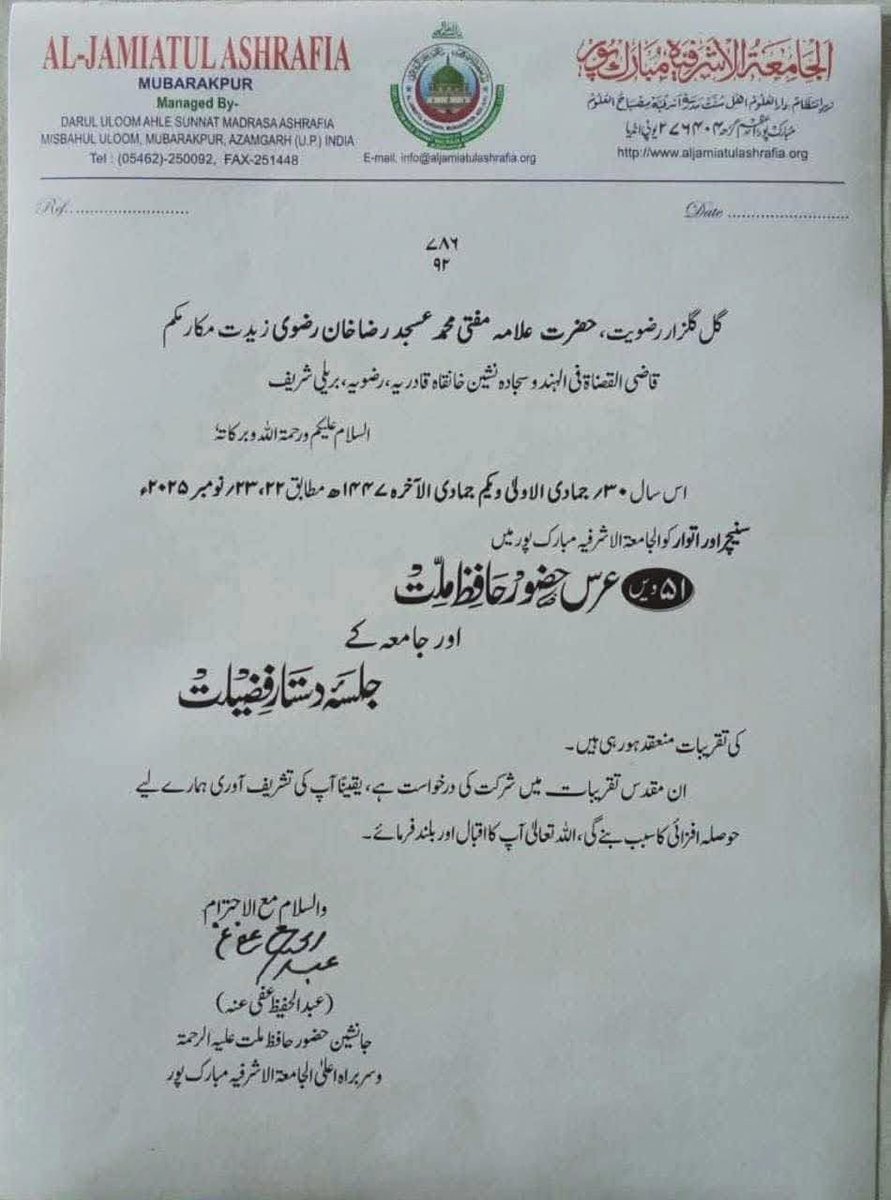 AL-JAMIATUL ASHRAFIA
MUBARAKPUR
Managed By-
DARUL ULOOM AHLE SUNNAT MADRASA ASHRAFIA
MISBAHUL ULOOM, MUBARAKPUR, AZAMGARH (U.P.) INDIA
Tel : (05462)-250092, FAX-251448
E-mail, info@aljamiatulashrafia.org
الجامعۃ الاشرفیہ مبارک پور
زیر انتظام دارالعلوم اہل سنت مدرسہ اشرفیہ مصباح العلوم
مبارک پور اعظم گڑھ ۲۷۶۴۰۴ یوپی انڈیا
http://www.aljamiatulashrafia.org
Ref.........................
Date .........................
۷۸۶
۹۲
گل گلزار رضویت، حضرت علامہ مفتی محمد عسجد رضا خان رضوی زیدت مکارمکم
قاضی القضاۃ فی الہند و سجادہ نشین خانقاہ قادریہ، رضویہ، بریلی شریف
السلام علیکم ورحمۃ اللہ وبرکاتہٗ
اس سال ۳۰؍ جمادی الاولیٰ و یکم جمادی الآخرہ ۱۴۴۷ھ مطابق ۲۲، ۲۳؍ نومبر ۲۰۲۵ء
سنیچر اور اتوار کو الجامعۃ الاشرفیہ مبارک پور میں
۵۱ ویں عرس حضور حافظ ملّت
اور جامعہ کے
جلسۂ دستار فضیلت
کی تقریبات منعقد ہو رہی ہیں۔
ان مقدس تقریبات میں شرکت کی درخواست ہے، یقیناً آپ کی تشریف آوری ہمارے لیے
حوصلہ افزائی کا سبب بنے گی، اللہ تعالیٰ آپ کا اقبال اور بلند فرمائے۔
والسلام مع الاحترام
(عبدالحفیظ عفی عنہ)
جانشین حضور حافظ ملت علیہ الرحمۃ
و سربراہ اعلیٰ الجامعۃ الاشرفیہ مبارک پور